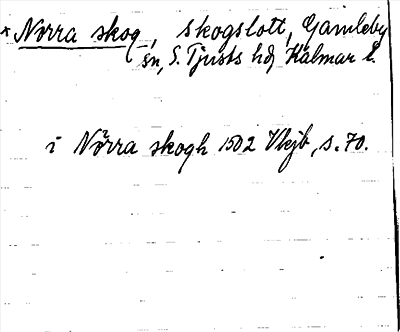 * Norra skog, skogslott, Gamleby
sn, S. Tjusts hd, Kalmar l.
i Nørra skogh 1502 Vkjb, s. 70.